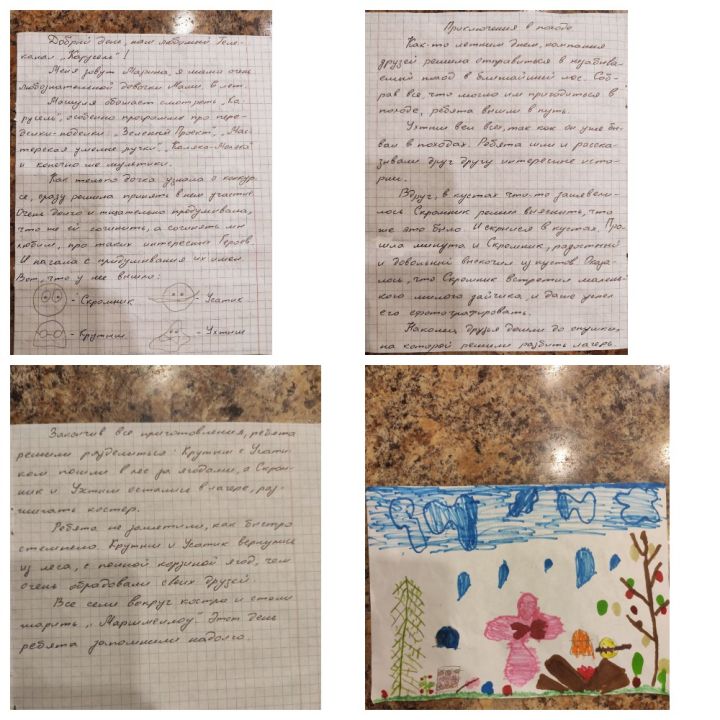 Добрый день, наш любимый Теле-
канал „Карусель"!
Меня зовут Марина, я мама очень
любознательной девочки Маши, 6 лет.
Машуля обожает смотреть „Ка
русель", особенно программы про пере-
делки-поделки „Зеленый Проект", „Мас-
терская умелые ручки", „Каляка-Маляка"
и конечно же мультики.
Как только дочка узнала о конкур-
се, сразу решила принять в нем участие.
Очень долго и тщательно продумывала,
что же ей сочинить, а сочинять мы
любим, про таких интересных Героев.
И начала с придумывания их имен.
Вот, что у нее вышло:
- Скромник - Усатик
- Крутыш - Ухтыш
Приключения в походе
Как-то летним днем, компания
друзей решила отправиться в незабыва-
емый поход в ближайший лес. Соб-
рав все, что могло им пригодиться в
походе, ребята вышли в путь.
Ухтыш вел всех, так как он уже бы-
вал в походах. Ребята шли и расска-
зывали друг другу интересные исто-
рии.
Вдруг, в кустах что-то зашевели-
лось. Скромник решил выяснить, что
же это было. И скрылся в кустах. Про-
шла минута и Скромник, радостный
и довольный выскочил из кустов. Оказа-
лось, что Скромник встретил малень-
кого милого зайчика, и даже успел
его сфотографировать.
Наконец друзья дошли до опушки,
на которой решили разбить лагерь.
Закончив все приготовления, ребята
решили разделиться: Крутыш с Усати-
ком пошли в лес за ягодами, а Скром-
ник и Ухтыш остались в лагере, раз-
жигать костер.
Ребята не заметили, как быстро
стемнело. Крутыш и Усатик вернулись
из леса, с полной корзиной ягод, чем
очень обрадовали своих друзей.
Все сели вокруг костра и стали
жарить „Маршмеллоу". Этот день
ребята запомнили надолго.